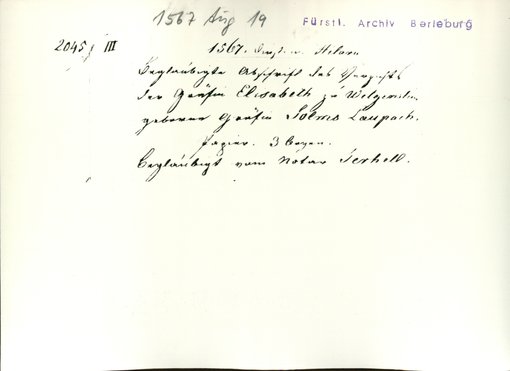 1567 Aug 19
Fürstl. Archiv Berleburg
2045 III
1567.
Beglaubigte Abschrift des Verzichts
der Gräfin Elisabeth zu Witgenstein
geborner Gräfin Solms Laupach.
Papier. 3 Bogen.
Beglaubigt vom Notar